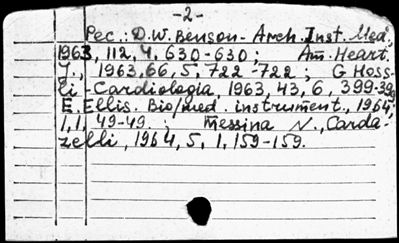 -2-
Рес.: D.W. Benson - Arch. Inst. Med.,
1963, 112, 4, 630-630; Am. Heart.
J., 1963, 66, 5, 722-722; G Hoss-
li - Cardiologia, 1963, 43, 6, 399-399
E. Ellis. Bio/med. instrument., 1964,
1, 1, 49-49.; Messina N., Carda-
zelli, 1964, 5, 1, 159-159.